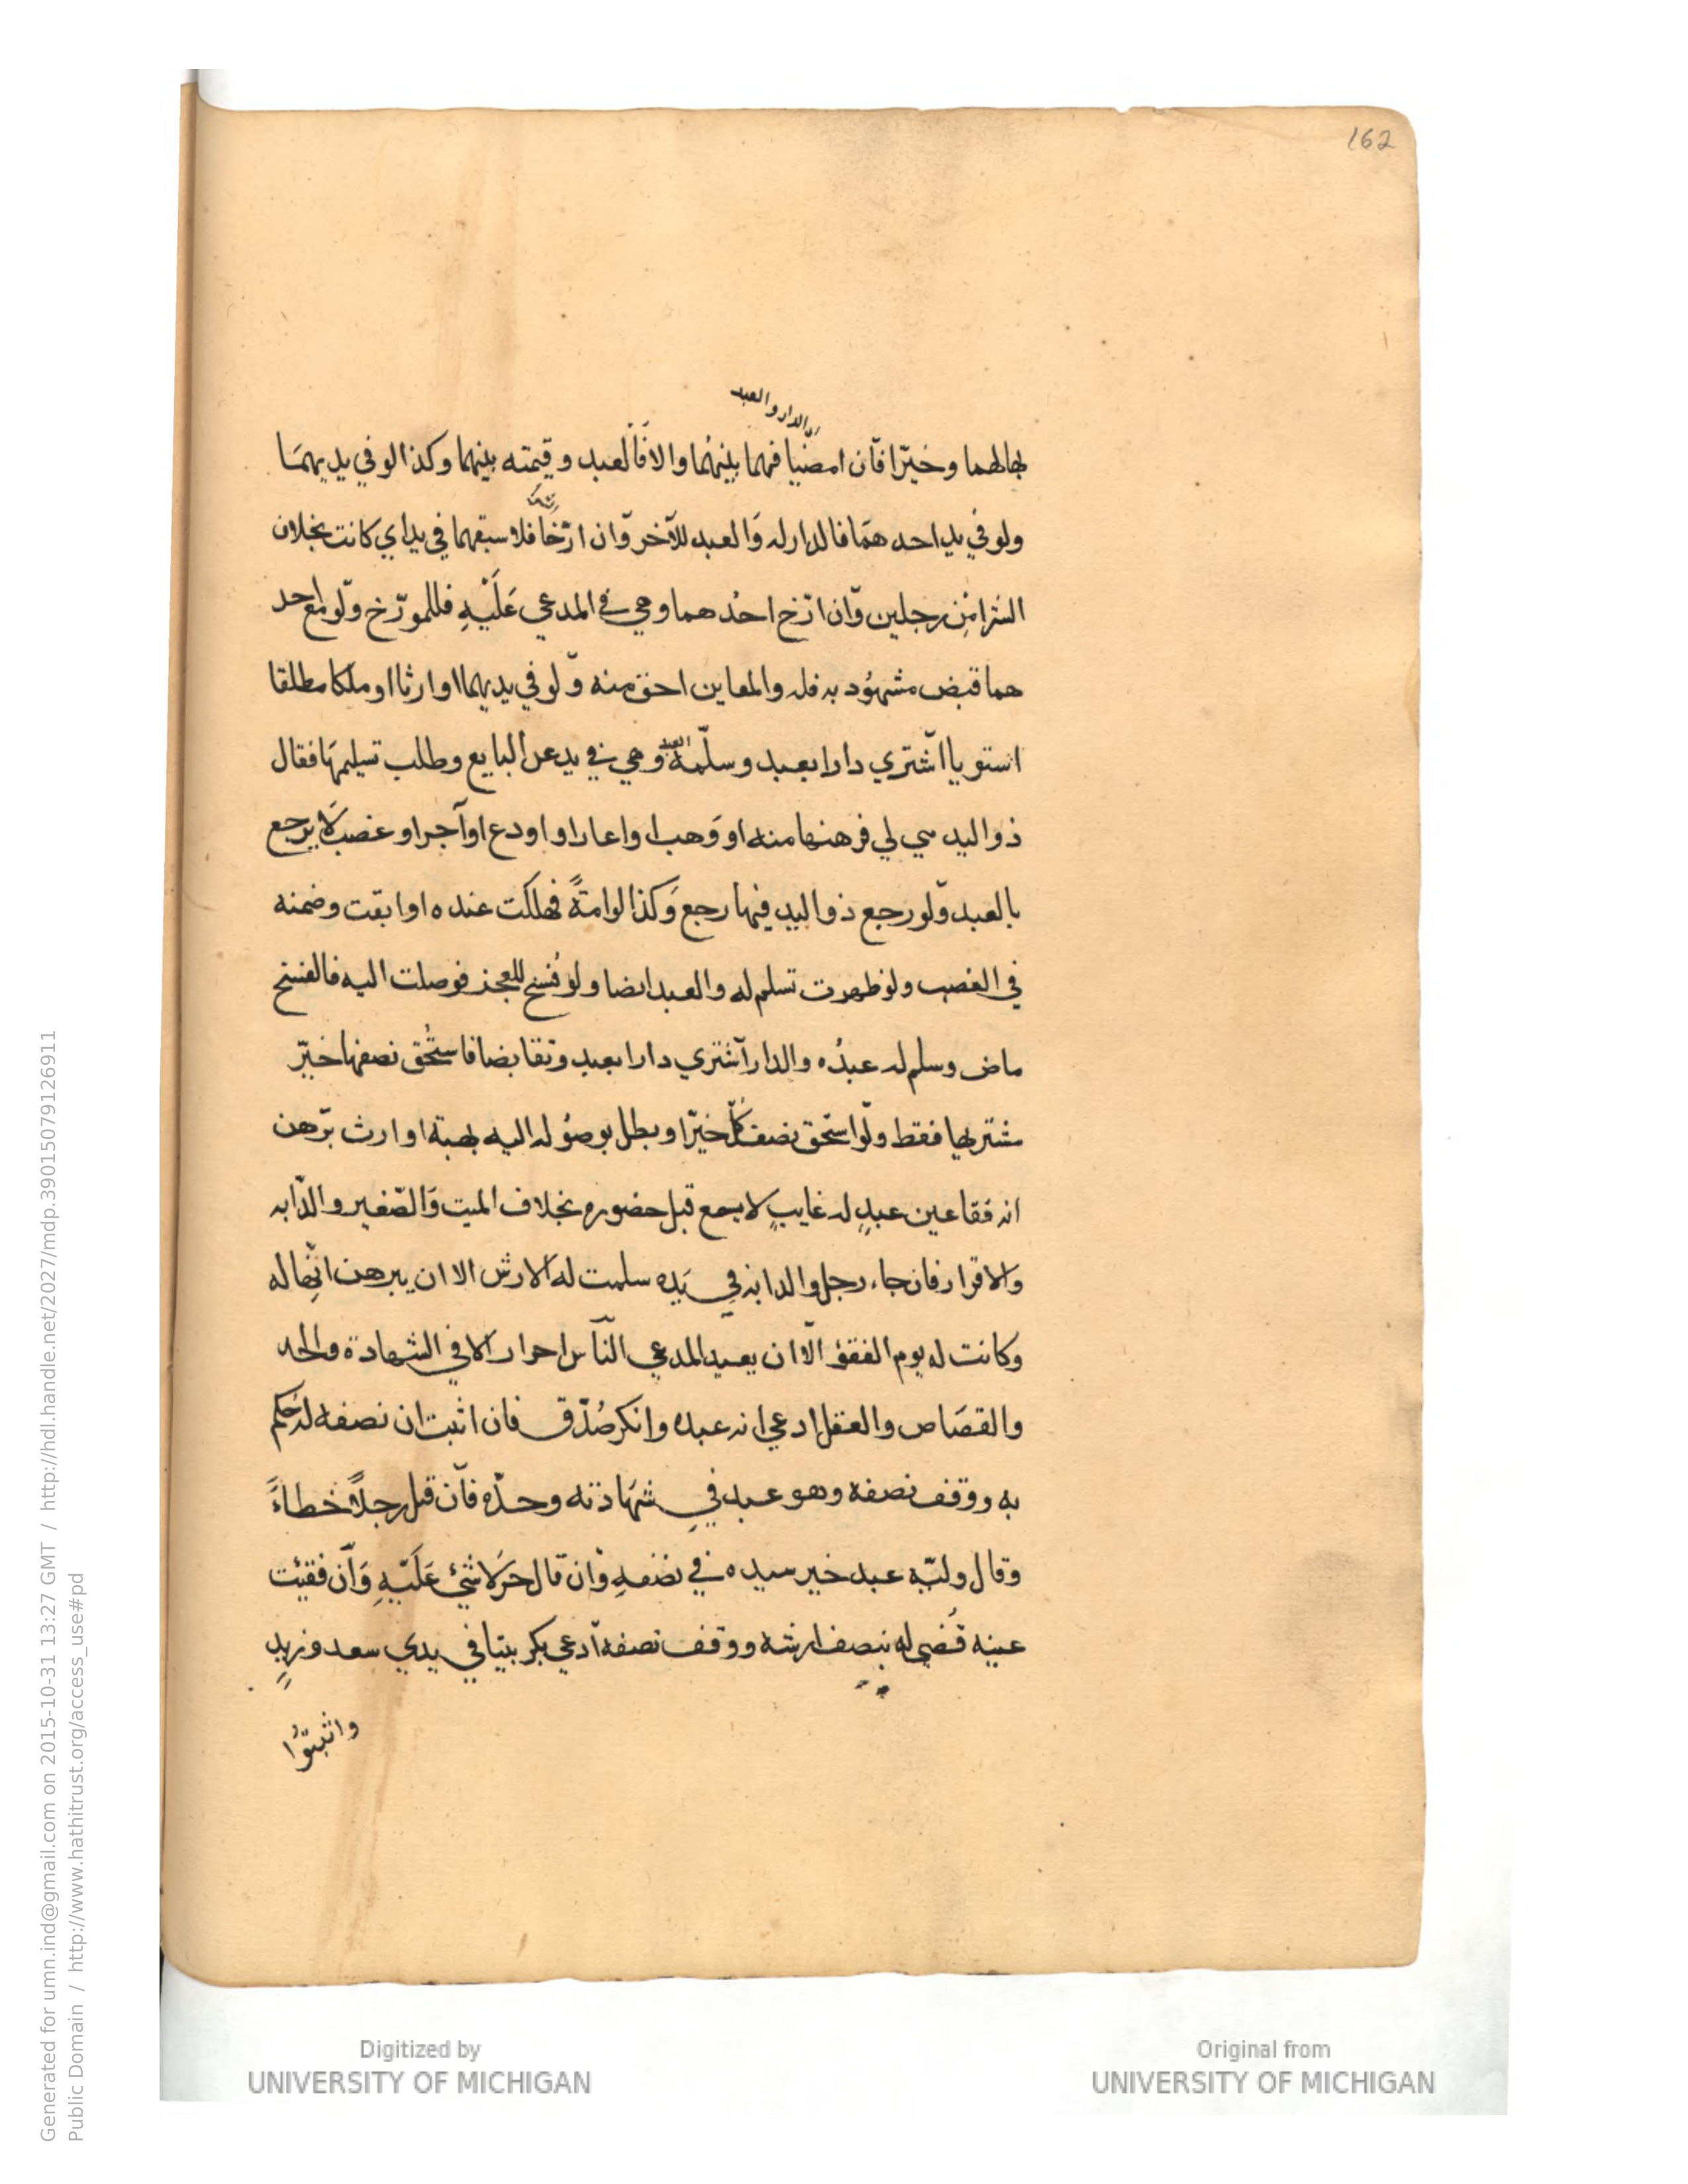 162
اي الدار والعبد
بهالهما وخيّرا فآن امضيا فهما بينهُما والا فَالعبد وقيمته بينهما وكذا لو في يديهمَا
ولو في يد احدهمَا فالدار له وَالعبد للآخر وّان ارّخا فلاسبقهما في يد اي كانت بخلاف
الشرا مِن رجلين وّان ارّخ احدُهما وهي في المدعي عَلَيْهِ فللمورّخ وّلو مع احد
هما قبض مشهُود به فله والمعاين احق منه وّلو في يديهما او ارثا او ملكا مطلقا
استويا اشّتري دارا بعبد وسلّمه العبد وهي في يد غير البايع وطلب تسليمهَا فقال
ذو اليد هي لي فرهنها منه او وَهب او اعار او اودع او آجر او غصب لَا يرجع
بالعبد وّلو رجع ذو اليد فيها رجع وَكذا لو امةً فهلكت عنده او ابقت وضمنه
في الغصب ولو ظهرت تسلم له والعبد ايضا ولو فُسخ للعجز فوصلت اليه فالفسخ
ماض وسلم له عبدُه والدار آشتري دارا بعبد وتقابضا فاستُحق نصفها خيّر
مشتريها فقط ولّو استحق نصف كلٍّ خيّرا وبطل بوصُوله اليه بهبة او ارث بّرهن
انه فقا عين عبدٍ له غايبٍ لا يسمع قبل حضوره بخلاف الميت وَالصّغير والدّابه
والاقرار فان جاء رجل والدابه في يَده سلمت له الارش الا ان يبرهن انّها له
وكانت له يوم الفقؤ الّا ان يعيد المدعي النآس احرار الا في الشهادة والحد
والقصَاص والعقل ادعي انه عبده وانكر صُدّق فان اثبت ان نصفه له حُكم
به ووقف نصفه وهو عبد في شهَادته وحدّه فآن قتل رجلاً خطاءً
وقال وليّه عبد خير سيده في نصفهِ وّان قّال حر لَا شئ عَلَيّهِ وَآن فقيت
عينه قُضي له بنصف ارشه ووقف نصفه آدعي بكر بيتا في يدي سعد وزيدٍ
واثبتُوا
Generated for umn.ind@gmail.com on 2015-10-31 13:27 GMT / http://hdl.handle.net/2027/mdp.39015079126911
Public Domain / http://www.hathitrust.org/access_use#pd
Digitized by
UNIVERSITY OF MICHIGAN
Original from
UNIVERSITY OF MICHIGAN